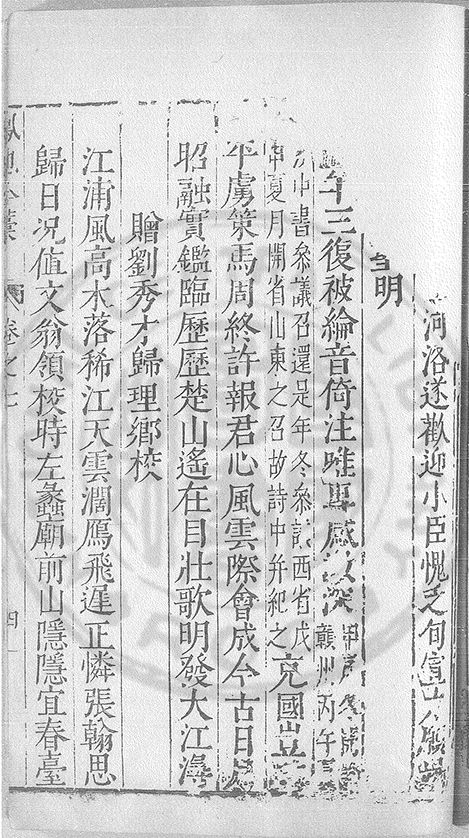 河洛遂歡迎小臣愧乏旬宣
明
年三復被綸音倚注唯專感
中書參議召還是年冬參議西省戊
申夏月開省山東之召故詩中并紀之
贛州丙午
充國
平虜策馬周終許報君心風雲際會成今古日月
昭融實鑑臨歷歷楚山遙在目壯歌明發大江潯
贈劉秀才歸理鄉校
江浦風高木落稀江天雲濶鴈飛遲正憐張翰思
歸日况值文翁領校時左蠡廟前山隱隱宜春臺
卷之七
四